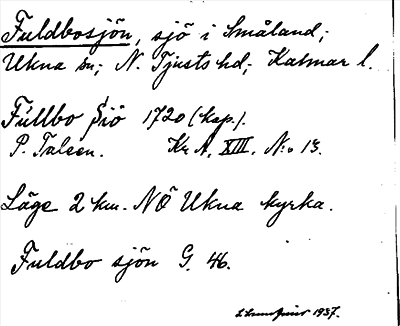 Fuldbosjön, sjö i Småland;
Ukna sn; N. Tjusts hd; Kalmar l.
Fullbo Siö 1720 (kop.).
P. Talsen. Kr A, XIII. N:o 13.
Läge 2 km. NÖ Ukna kyrka.
Fuldbo sjön G. 46.
1937.